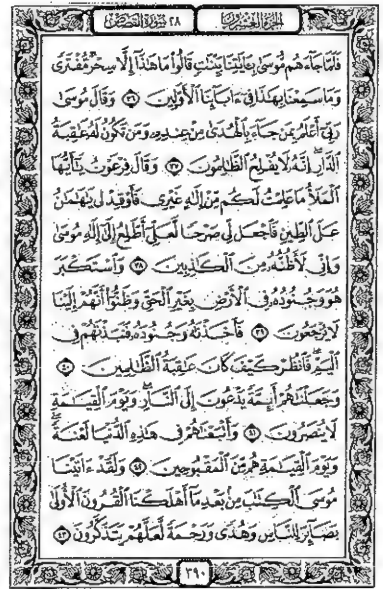 الجزء العشرون ٢٨ سورة القصص
فَلَمَّا جَآءَهُم مُّوسَىٰ بِـَٔايَـٰتِنَا بَيِّنَـٰتٍ قَالُوا۟ مَا هَـٰذَآ إِلَّا سِحْرٌ مُّفْتَرًى
وَمَا سَمِعْنَا بِهَـٰذَا فِىٓ ءَابَآئِنَا ٱلْأَوَّلِينَ ٣٦ وَقَالَ مُوسَىٰ
رَبِّىٓ أَعْلَمُ بِمَن جَآءَ بِٱلْهُدَىٰ مِنْ عِندِهِۦ وَمَن تَكُونُ لَهُۥ عَـٰقِبَةُ
ٱلدَّارِ إِنَّهُۥ لَا يُفْلِحُ ٱلظَّـٰلِمُونَ ٣٧ وَقَالَ فِرْعَوْنُ يَـٰٓأَيُّهَا
ٱلْمَلَأُ مَا عَلِمْتُ لَكُم مِّنْ إِلَـٰهٍ غَيْرِى فَأَوْقِدْ لِى يَـٰهَـٰمَـٰنُ
عَلَى ٱلطِّينِ فَٱجْعَل لِّى صَرْحًا لَّعَلِّىٓ أَطَّلِعُ إِلَىٰٓ إِلَـٰهِ مُوسَىٰ
وَإِنِّى لَأَظُنُّهُۥ مِنَ ٱلْكَـٰذِبِينَ ٣٨ وَٱسْتَكْبَرَ
هُوَ وَجُنُودُهُۥ فِى ٱلْأَرْضِ بِغَيْرِ ٱلْحَقِّ وَظَنُّوٓا۟ أَنَّهُمْ إِلَيْنَا
لَا يُرْجَعُونَ ٣٩ فَأَخَذْنَـٰهُ وَجُنُودَهُۥ فَنَبَذْنَـٰهُمْ فِى
ٱلْيَمِّ فَٱنظُرْ كَيْفَ كَانَ عَـٰقِبَةُ ٱلظَّـٰلِمِينَ ٤٠
وَجَعَلْنَـٰهُمْ أَئِمَّةً يَدْعُونَ إِلَى ٱلنَّارِ وَيَوْمَ ٱلْقِيَـٰمَةِ
لَا يُنصَرُونَ ٤١ وَأَتْبَعْنَـٰهُمْ فِى هَـٰذِهِ ٱلدُّنْيَا لَعْنَةً
وَيَوْمَ ٱلْقِيَـٰمَةِ هُم مِّنَ ٱلْمَقْبُوحِينَ ٤٢ وَلَقَدْ ءَاتَيْنَا
مُوسَى ٱلْكِتَـٰبَ مِنۢ بَعْدِ مَآ أَهْلَكْنَا ٱلْقُرُونَ ٱلْأُولَىٰ
بَصَآئِرَ لِلنَّاسِ وَهُدًى وَرَحْمَةً لَّعَلَّهُمْ يَتَذَكَّرُونَ ٤٣
٣٩٠